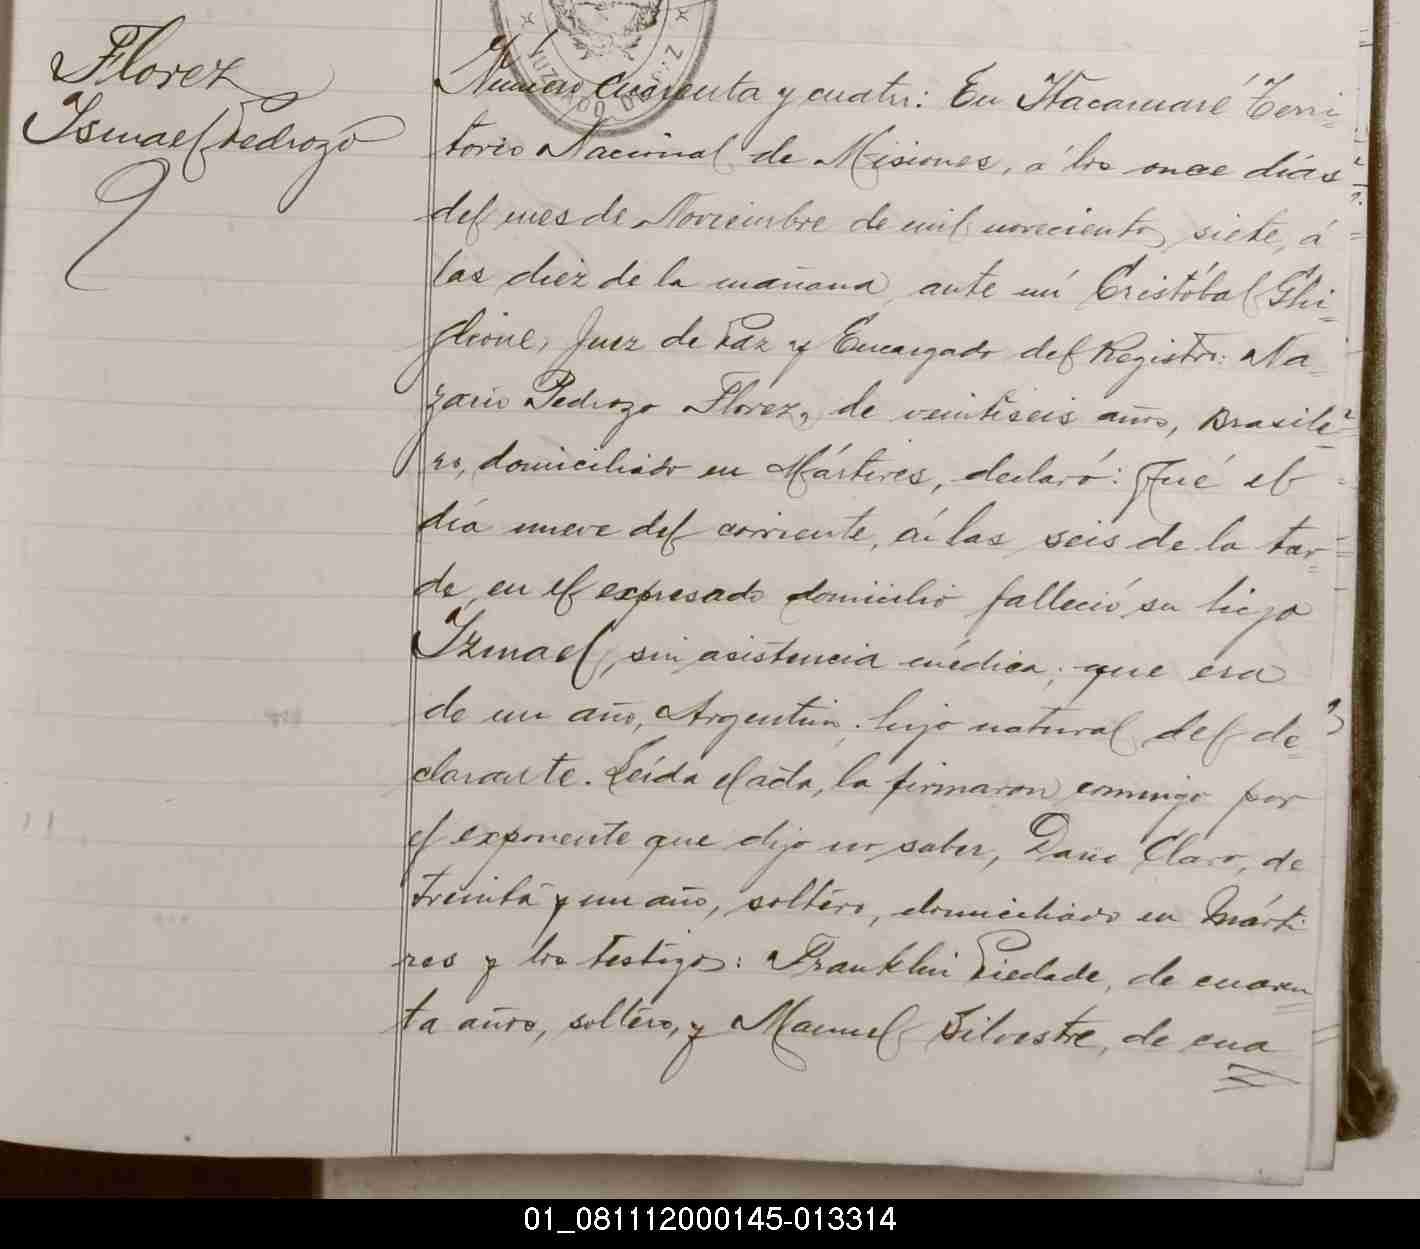 Florez
Ismael Pedrozo
JUZGADO
Número cuarenta y cuatro: En Itacaruaré Terri-
torio Nacional de Misiones, á los once días
del mes de Noviembre de mil novecientos siete, á
las diez de la mañana, ante mí Cristóbal Ghi-
glione, Juez de Paz y Encargado del Registro: Na-
zario Pedrozo Florez, de veintiseis años, Brasile-
ro, domiciliado en Mártires, declaró: Qué el
día nueve del corriente, á las seis de la tar-
de, en el expresado domicilio falleció su hijo
Izmael, sin asistencia médica; que era
de un año, Argentino; hijo natural del de-
clarante. Leída el acta, la firmaron conmigo por
el exponente que dijo no saber, Dario Claro, de
treinta y un años, soltero, domiciliado en Márti-
res y los testigos: Franklin Piedade, de cuaren-
ta años, soltero, y Manuel Silvestre, de cua
01_081112000145-013314